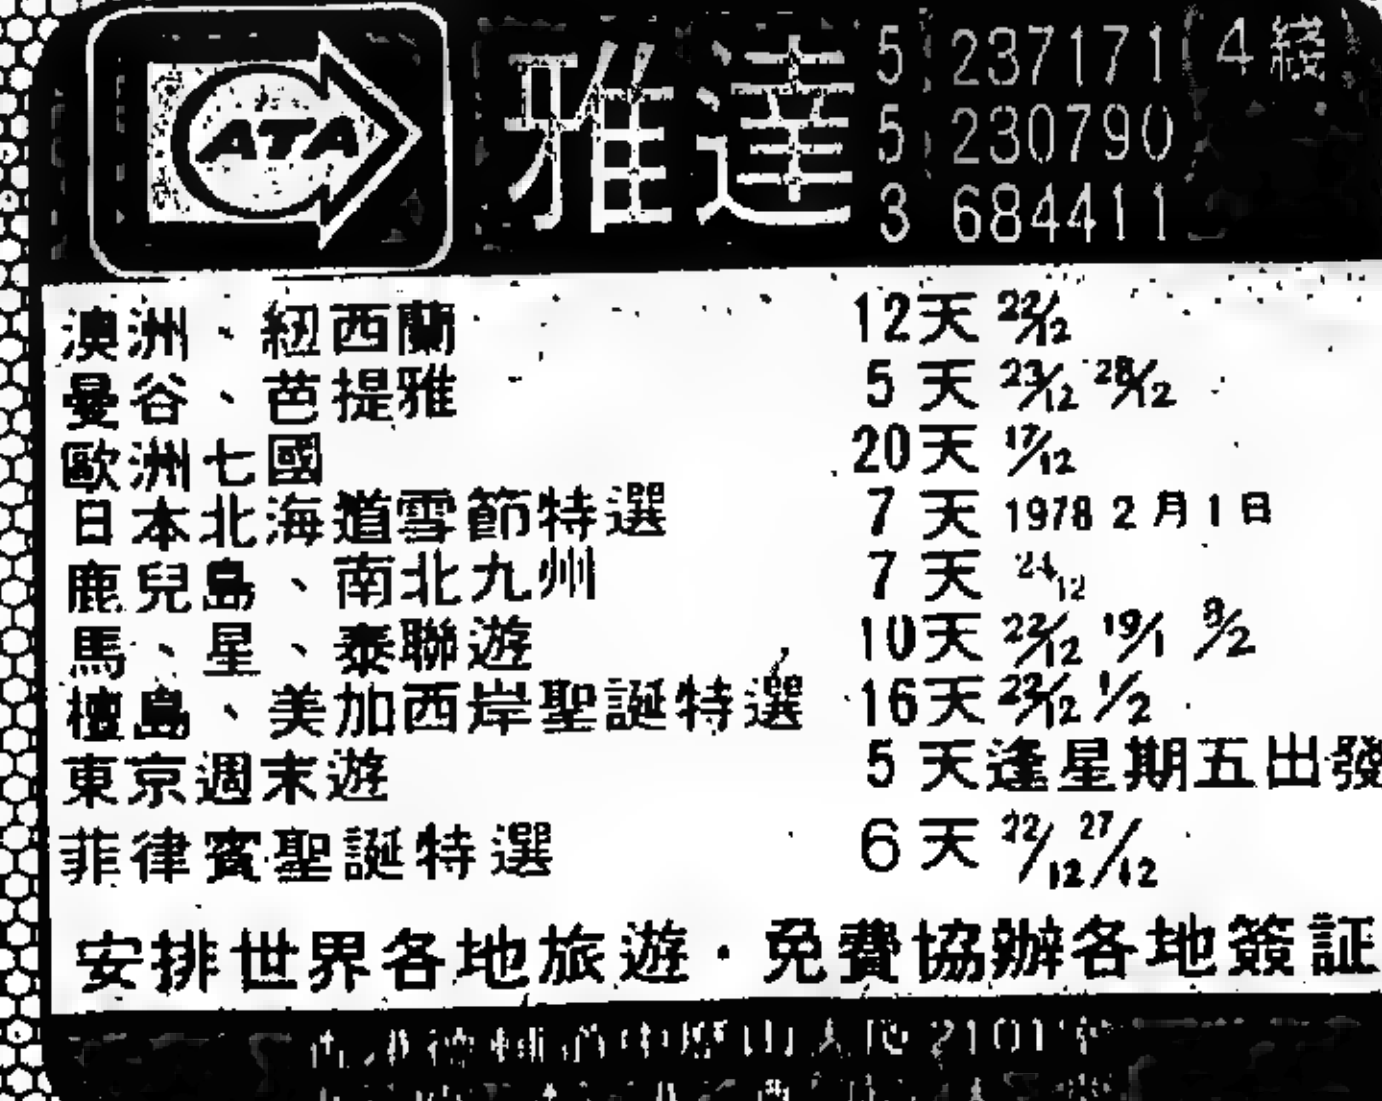 ATA 雅達 5 237171 (4綫)
5 230790
3 684411
澳洲、紐西蘭 12天 22/12
曼谷、芭提雅 5天 23/12 28/12
歐洲七國 20天 17/12
日本北海道雪節特選 7天 1978 2月1日
鹿兒島、南北九州 7天 24/12
馬、星、泰聯遊 10天 22/12 19/1 9/2
檀島、美加西岸聖誕特選 16天 23/12 1/2
東京週末遊 5天逢星期五出發
菲律賓聖誕特選 6天 22/12 27/12
安排世界各地旅遊·免費協辦各地簽証
德輔道中 2101